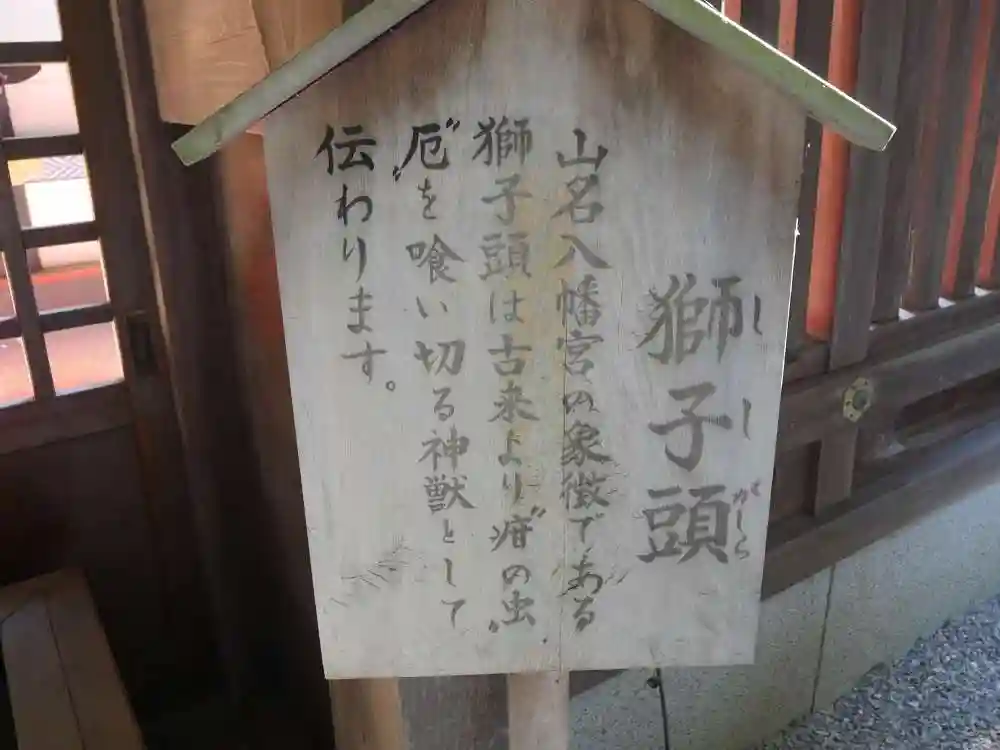 獅子頭
しし がしら
山名八幡宮の象徴である
獅子頭は古来より〝疳の虫〟
〝厄〟を喰い切る神獣として
伝わります。